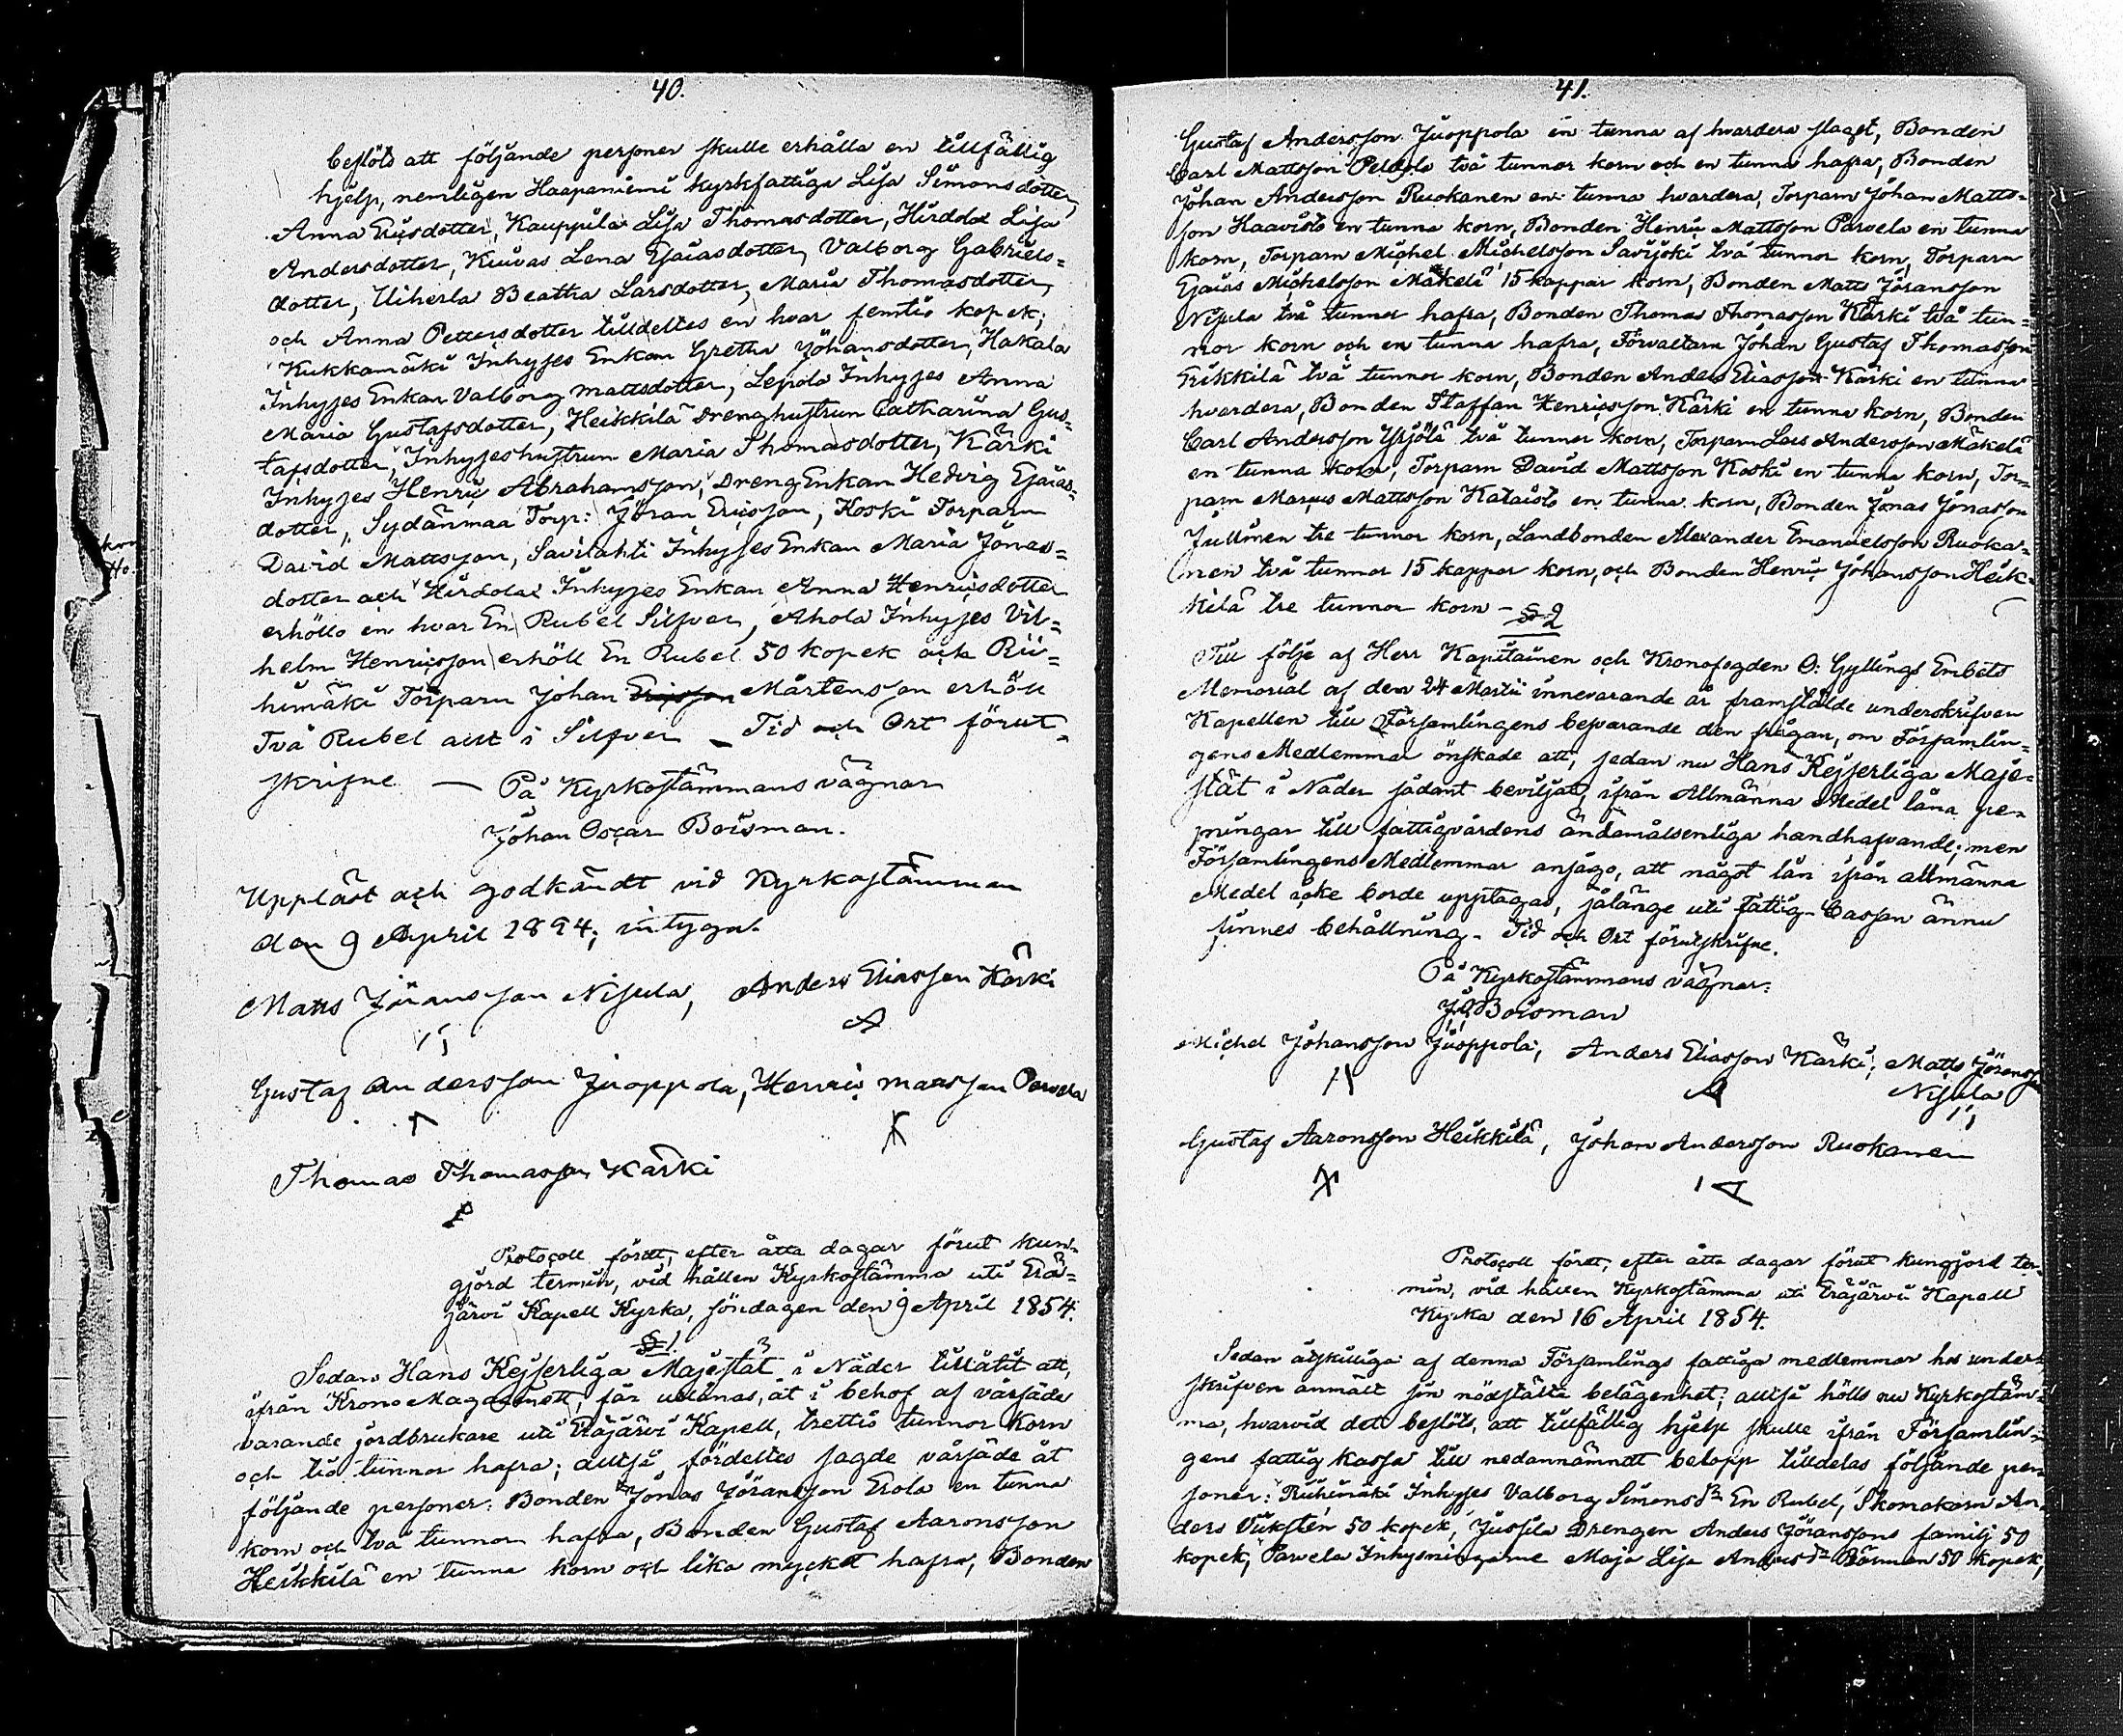 40.
beslöts att följande personer skulle erhålla en tillfällig
hjelp, nemligen Haapaniemi kyrkfattiga Lisa Simonsdotter,
Anna Ericsdotter, Kauppila Lisa Thomasdotter, Hirdola Lisa
Andersdotter, Kuivas Lena Esaiasdotter, Valborg Gabriels=
dotter, Uiherla Beatha Larsdotter, Maria Thomasdotter,
och Anna Pettersdotter tilldeltes en hvar femtio kopek;
Kukkamäki Inhyses Enkan Gretha Johansdotter, Hakala
Inhyses Enkan Valborg Mattsdotter, Lepola Inhyses Anna
Maria Gustafsdotter, Heikkilä Drenghustrun Catharina Gus=
tafsdotter, Inhyseshustrun Maria Thomasdotter, Kärki
Inhyses Henric Abrahamsson, DrengEnkan Hedvig Esaias=
dotter, Sydänmaa Torp: Jöran Ericsson, Koski Torparn
David Mattsson, Savilahti Inhyses Enkan Maria Jonas=
dotter och Hirdola Inhyses Enkan Anna Henricsdotter
erhöllo en hvar En Rubel Silfver, Ahola Inhyses Vil=
helm Henricsson erhöll En Rubel 50 kopek och Rii=
himäki Torparn Johan Ericsson Mårtensson erhöll
Två Rubel allt i Silfver – Tid och Ort förut=
skrifne — På Kyrkostämmans vägnar
Johan Oscar Boisman.
Uppläst och godkändt vid Kyrkostämman
den 9 April 1894; intygas.
Matts Jöransson Nisula, Anders Eliasson Kärki
Gustaf Andersson Juoppola, Henric Matsson Parvela
Thomas Thomasson Kärki
Protocoll fördt, efter åtta dagar förut kun=
gjord termin, vid hållen Kyrkostämma uti Erä=
järvi Kapell Kyrka, söndagen den 9 April 1854.
§ 1.
Sedan Hans Kejserliga Majestät i Nåder tillåtit att,
ifrån Krono Magasinett, får utlånas, åt i behof af vårsäde
varande jordbrukare uti Eräjärvi Kapell, trettio tunnor korn
och tio tunnor hafra; alltså fördeltes sagde vårsäde åt
följande personer: Bonden Jonas Jöransson Erola en tunna
korn och två tunnor hafra, Bonden Gustaf Aaronsson
Heikkilä en tunna korn och lika mycket hafra, Bonden
41.
Gustaf Andersson Juoppola en tunna af hvardera slaget, Bonden
Carl Mattsson Peltola två tunnor korn och en tunna hafra, Bonden
Johan Andersson Ruokanen en tunna hvardera, Torparn Johan Matts=
son Haavisto en tunna korn, Bonden Henric Mattsson Parvela en tunna
korn, Torparn Michel Michelsson Savijoki två tunnor korn, Torparn
Esaias Michelsson Mäkelä 15 kappar korn, Bonden Matts Jöransson
Nisula två tunnor hafra, Bonden Thomas Thomasson Kärki två tun=
nor korn och en tunna hafra, Förvaltarn Johan Gustaf Thomasson
Erikkilä två tunnor korn, Bonden Anders Eliasson Kärki en tunna
hvardera, Bonden Staffan Henricsson Kärki en tunna korn, Bonden
Carl Andersson Yrjölä två tunnor korn, Torparn Lars Andersson Mäkelä
en tunna korn, Torparn David Mattsson Koski en tunna korn, Tor=
parn Marcus Mattsson Kataisto en tunna korn, Bonden Jonas Jonasson
Jullinen tre tunnor korn, Landbonden Alexander Emanuelsson Ruoka=
nen två tunnor 15 kappar korn, och Bonden Henric Johansson Heik=
kilä tre tunnor korn –
§ 2
Till följe af Herr Kapitainen och Kronofogden O: Gyllings Embets
Memorial af den 24 Martii innevarande år framstälde underskrifven
Kapellan till Församlingens besvarande den frågan, om Församlin=
gens Medlemmar önskade att, sedan nu Hans Kejserliga Maje=
stät i Nåder sådant beviljat, ifrån Allmänna Medel låna pen=
ningar till fattigvårdens ändamålsenliga handhafvande; men
Församlingens Medlemmar ansågo, att något lån ifrån allmänna
Medel icke borde upptagas, sålänge uti fattig-Cassan ännu
finnes behållning. Tid och Ort förutskrifne.
På Kyrkostämmans vägnar:
J.O. Boisman
Michel Johansson Juoppola, Anders Eliasson Kärki, Matts Jöransson
Nisula
Gustaf Aaronsson Heikkilä, Johan Andersson Ruokanen
Protocoll fördt, efter åtta dagar förut kungjord ter=
min, vid hållen Kyrkostämma uti Eräjärvi Kapell
Kyrka den 16 April 1854.
Sedan åtskilliga af denna Församlings fattiga medlemmar hos under=
skrifven anmält sin nödstälta belägenhet; alltså hölls nu Kyrkostäm=
ma, hvarvid det beslöts, att tillfällig hjelp skulle ifrån Församlin=
gens fattig kassa till nedannämndt belopp tilldelas följande per=
soner: Riihimäki Inhyses Valborg Simonsdr En Rubel, Skomakarn An=
ders Vikstén 50 kopek, Jussila Drengen Anders Jöranssons familj 50
kopek, Parvela Maja Lisa Andersdr 50 kopek,